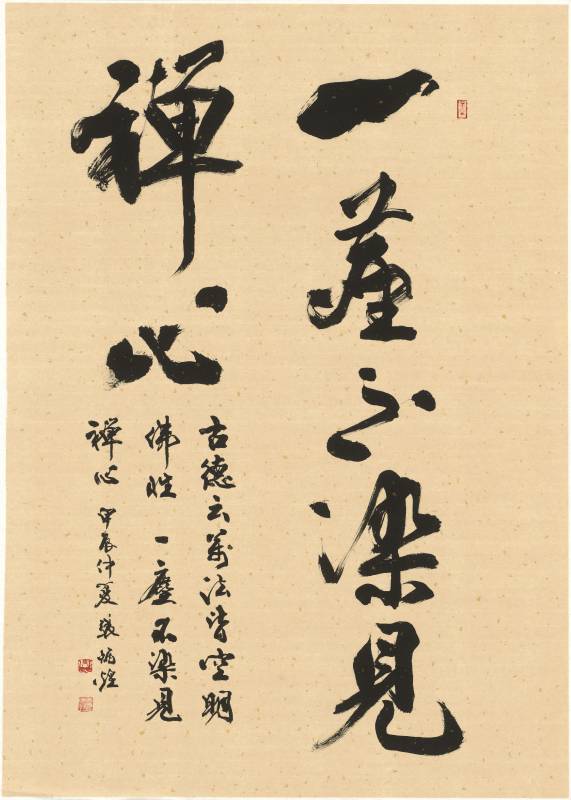 一塵不染見
禪心
古德云萬法皆空明
佛性一塵不染見
禪心 甲辰仲夏 張炳煌